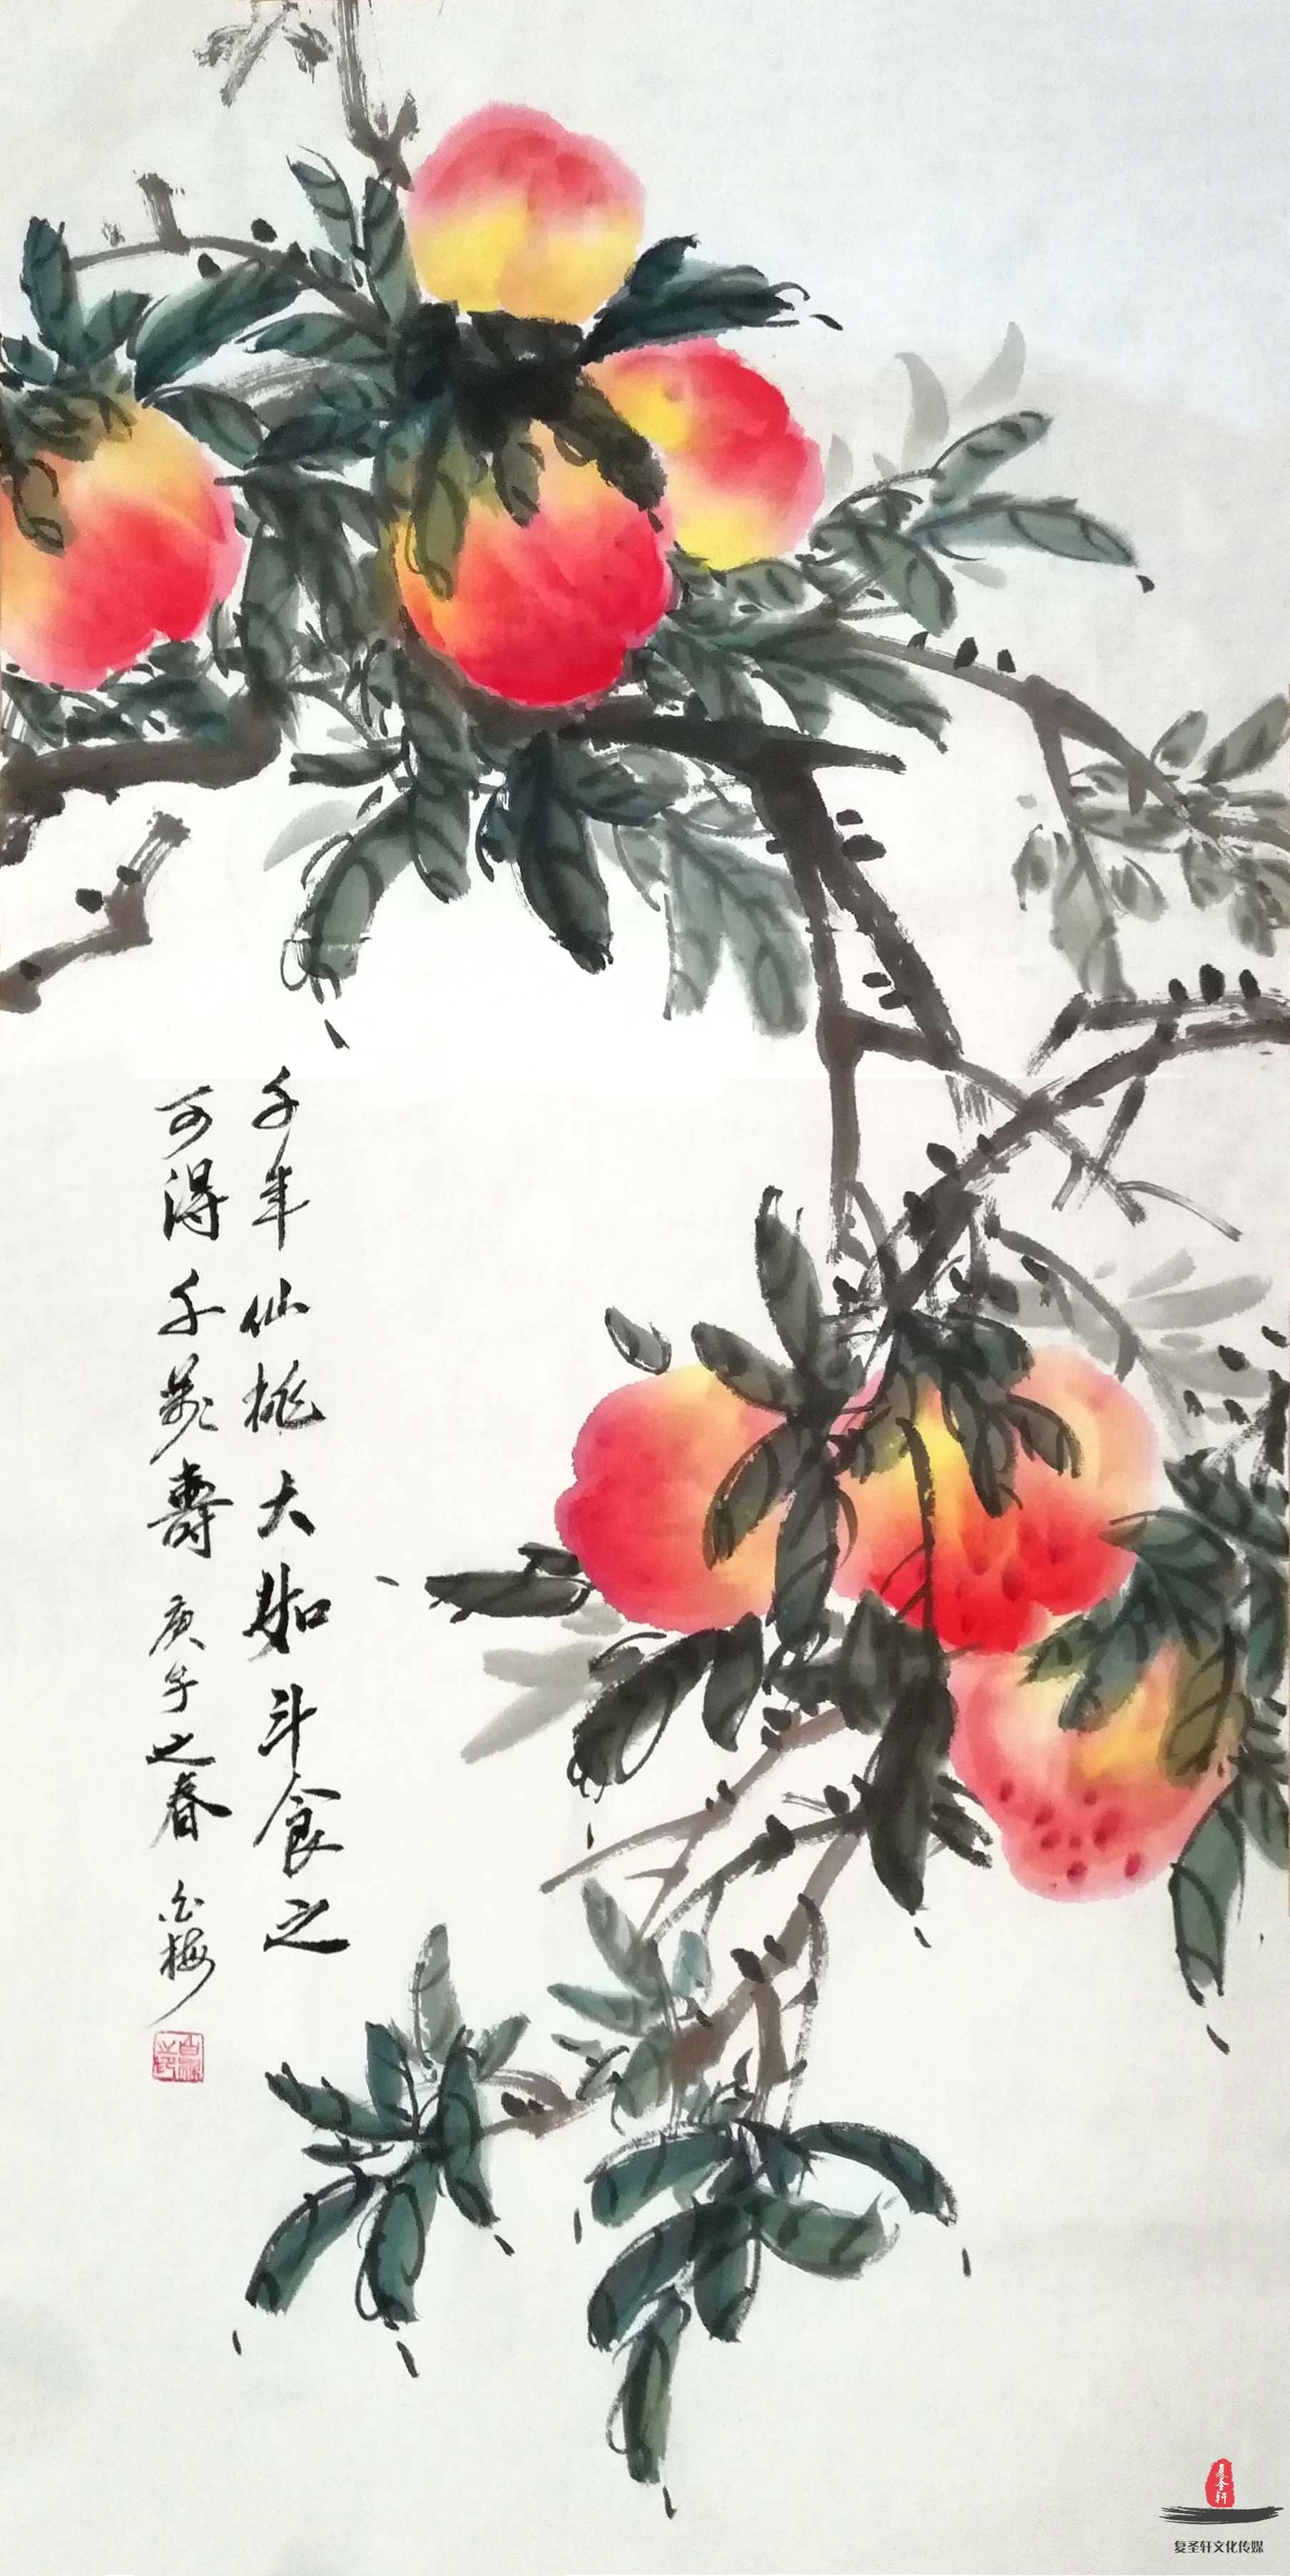 千年仙桃大如斗食之
可得千万寿 庚子之春 白梅
复圣轩
复圣轩文化传媒